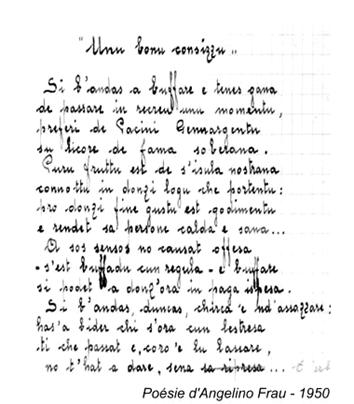 "Unu bonu consizzu"
Si b'andas a buffare e tenes gana
de passare in recreu unu momentu,
preferi de Pacini Gennargentu
su licore de fama soberana.
Puru fruttu est de s'isula nostrana
connottu in donzi logu che portentu:
pro donzi fine gustu est godimentu
e rendet sa persone calda e sana...
A sos sensos no causat offesa
- s'est buffadu cun regula - e buffare
si podet a donz'ora in paga ispesa.
Si b'andas, duncas, chirca e nd'assazzare:
has'a bider chi s'ora cun lestresa
ti che passat e, coro e lu lassare,
no t'hat a dare, sena sa ripresa...
Poésie d'Angelino Frau - 1950